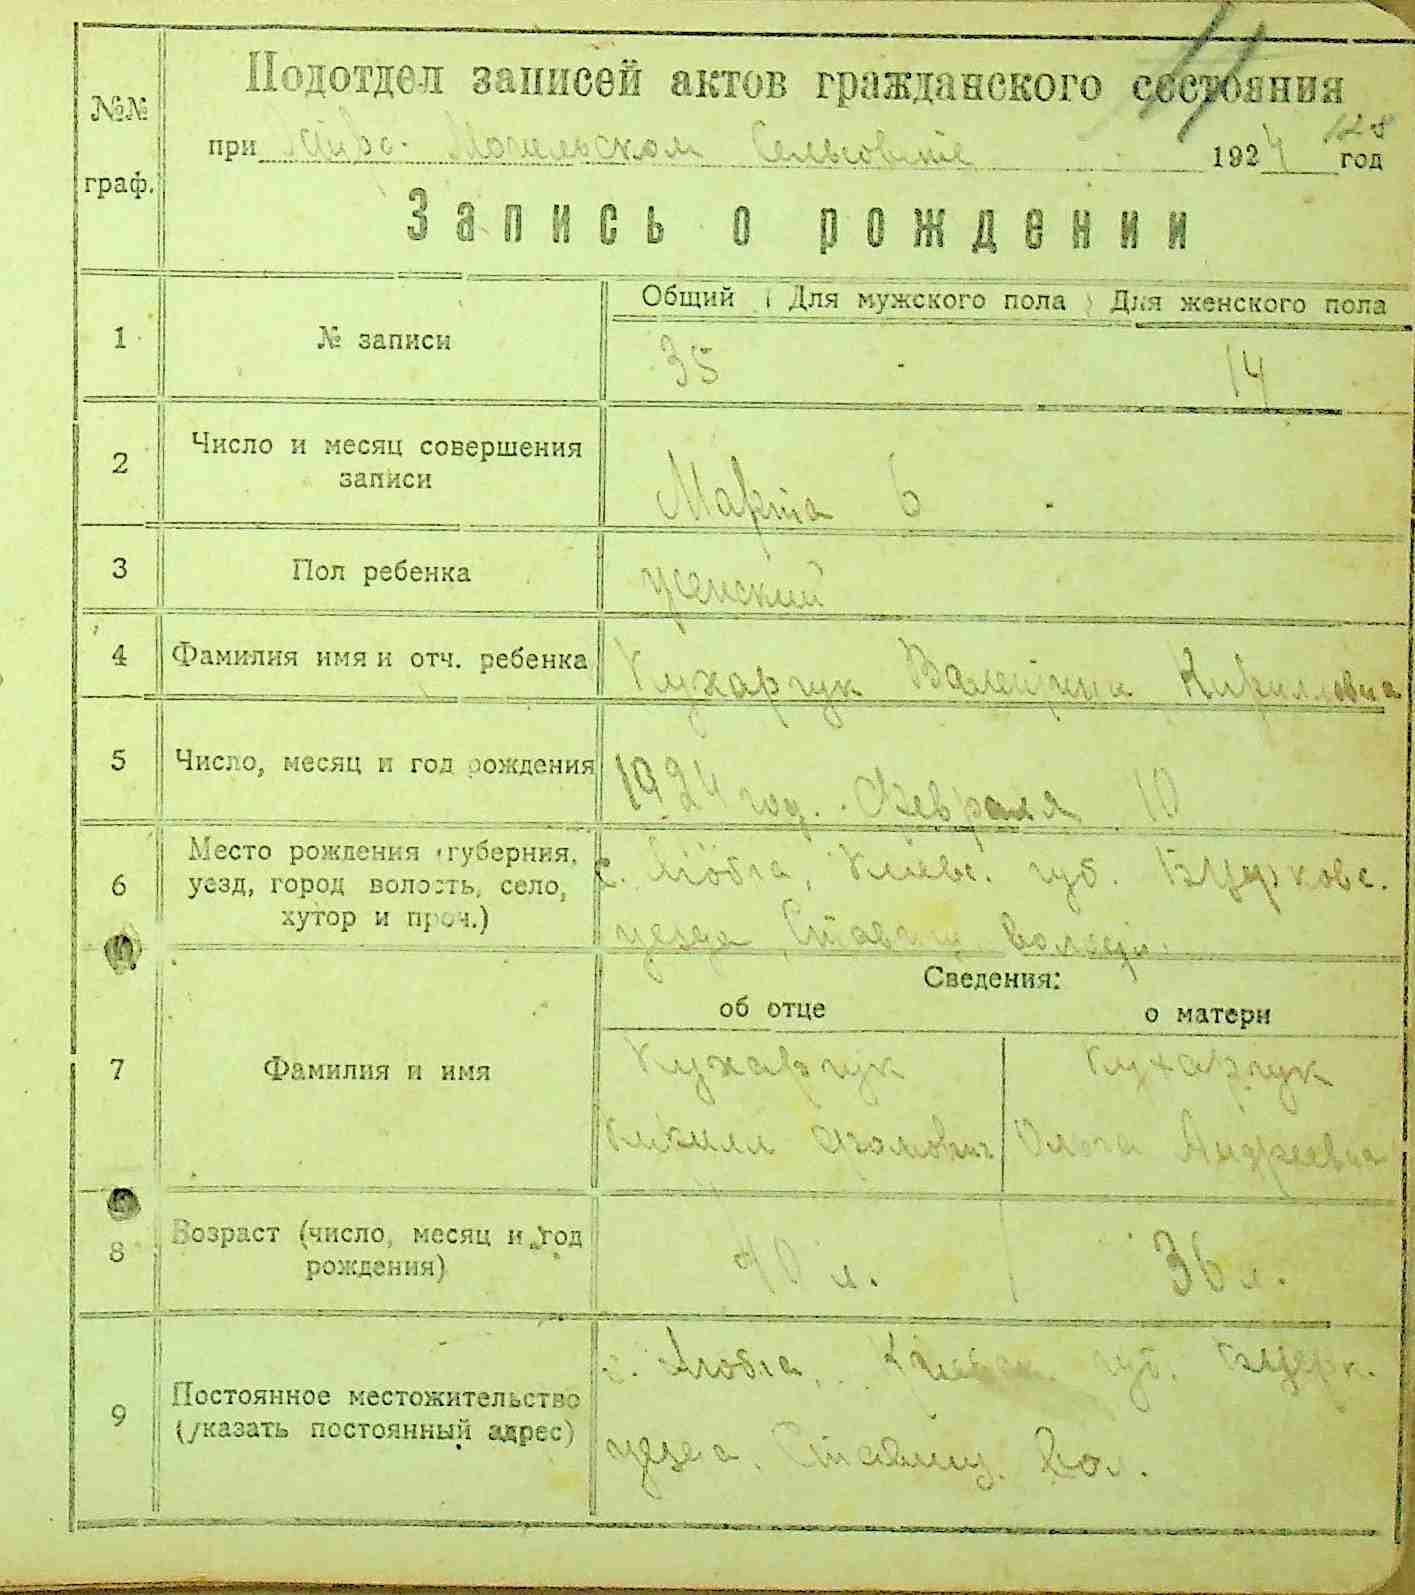 Подотдел записей актов гражданского состояния
№№ граф.
при Могильском Сельсовете 1924 год
128
Запись о рождении
Общий Для мужского пола Для женского пола
1 № записи 35 - 14
2 Число и месяц совершения записи Марта 6
3 Пол ребенка женский
4 Фамилия имя и отч. ребенка Кухарчук Валентина Кирилловна
5 Число, месяц и год рождения 1924 год. Февраля 10
6 Место рождения (губерния, уезд, город волость, село, хутор и проч.) с. Киевс. губ. Б.Церковс.
уезда, волости.
Сведения:
об отце о матери
7 Фамилия и имя Кухарчук Кухарчук
Кирилл Ольга Андреевна
8 Возраст (число, месяц и год рождения) 40 л. 36 л.
9 Постоянное местожительство (указать постоянный адрес) с. губ. Б.Церк.
уезда, Ставищ. вол.